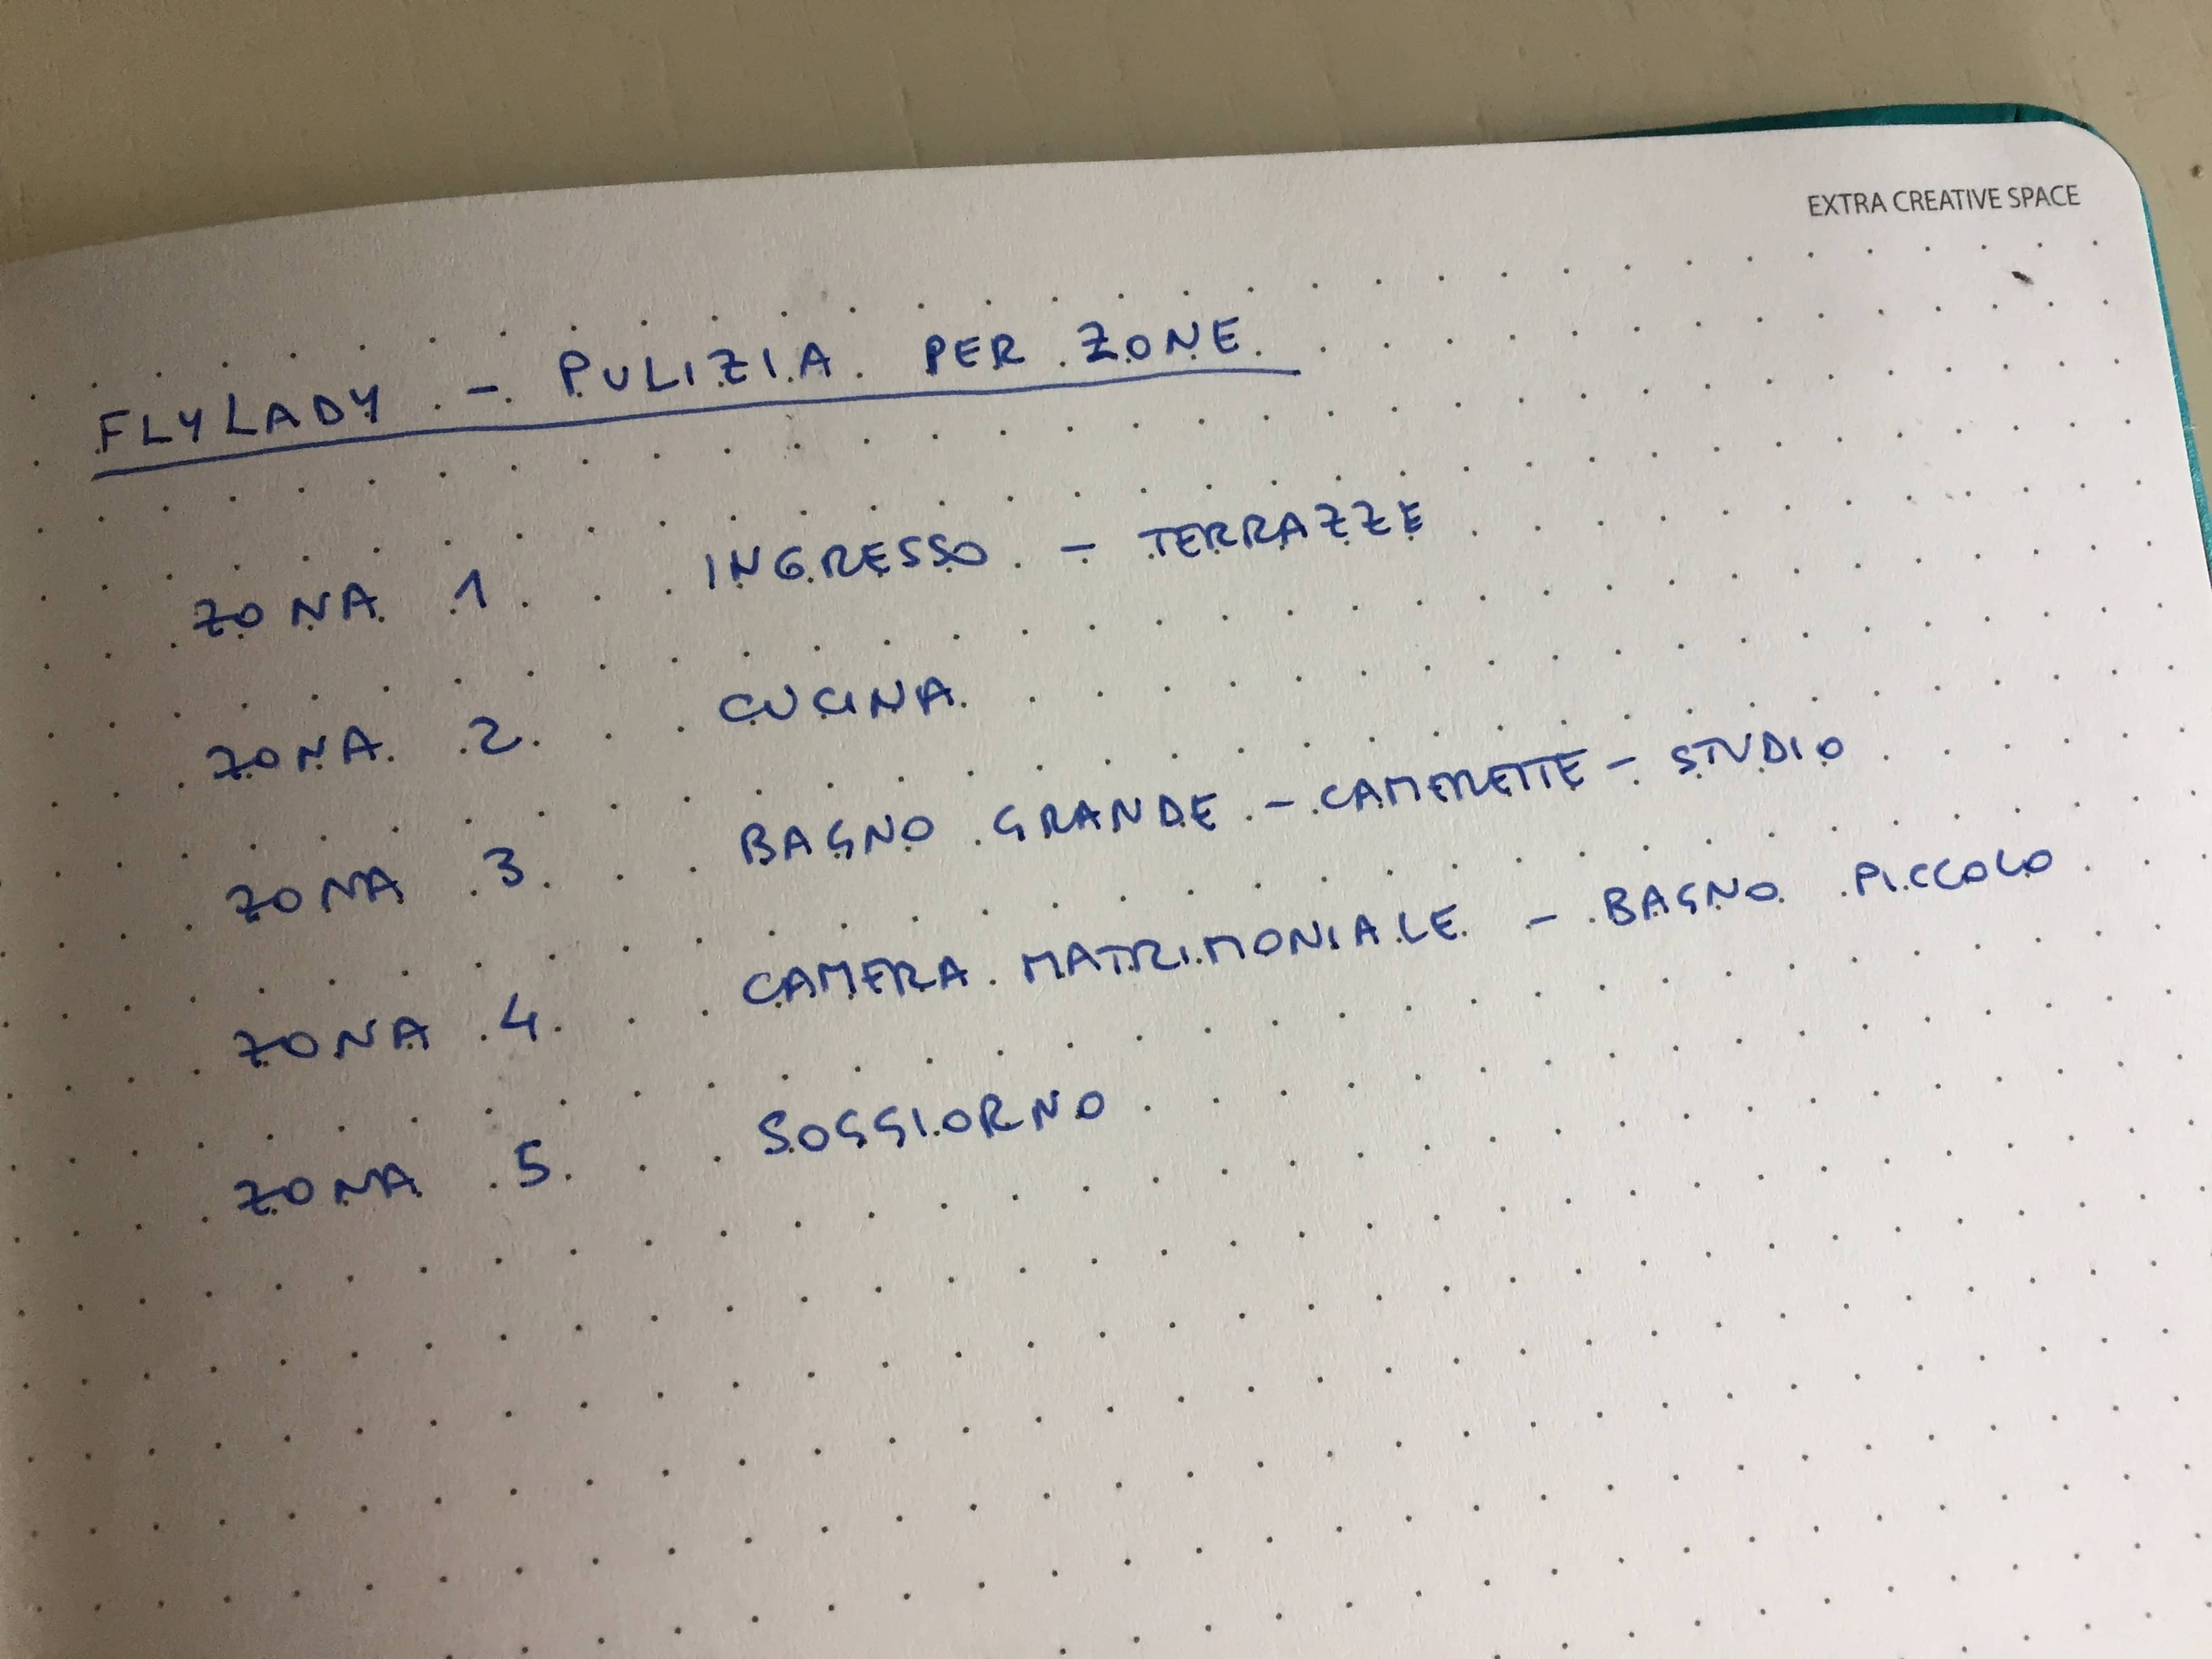 EXTRA CREATIVE SPACE
FLYLADY - PULIZIA PER ZONE
ZONA 1 INGRESSO - TERRAZZE
ZONA 2 CUCINA
ZONA 3 BAGNO GRANDE - CAMERETTE - STUDIO
ZONA 4 CAMERA MATRIMONIALE - BAGNO PICCOLO
ZONA 5 SOGGIORNO